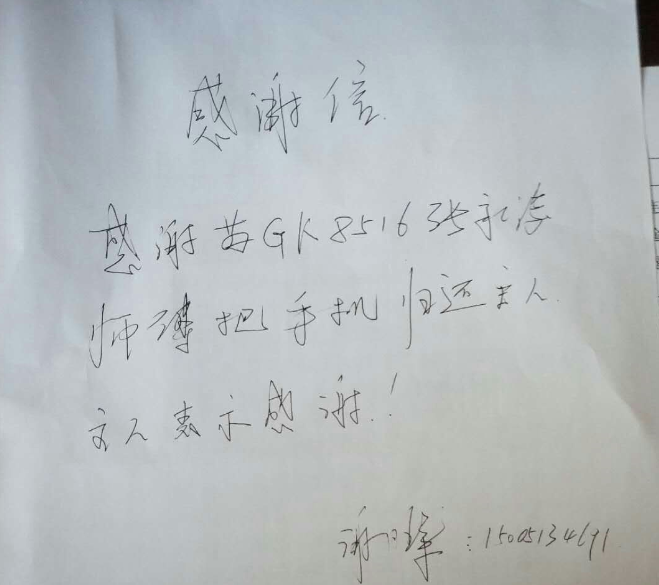 感谢信
感谢苏GK8516张永涛
师傅把手机归还主人
主人表示感谢!
谢 : 15005134691